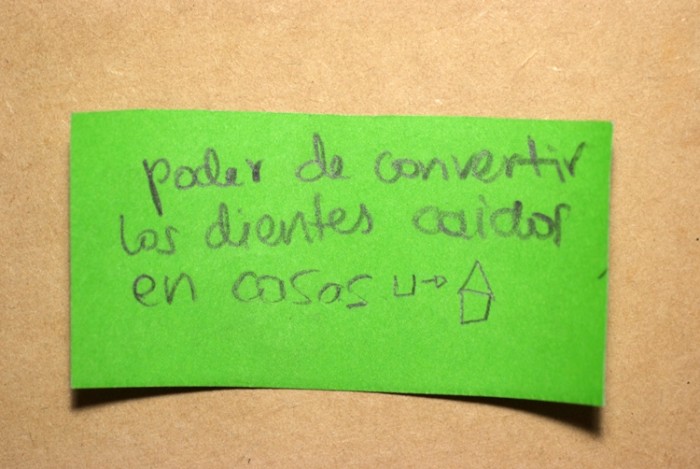 poder de convertir
los dientes caidos
en cosas